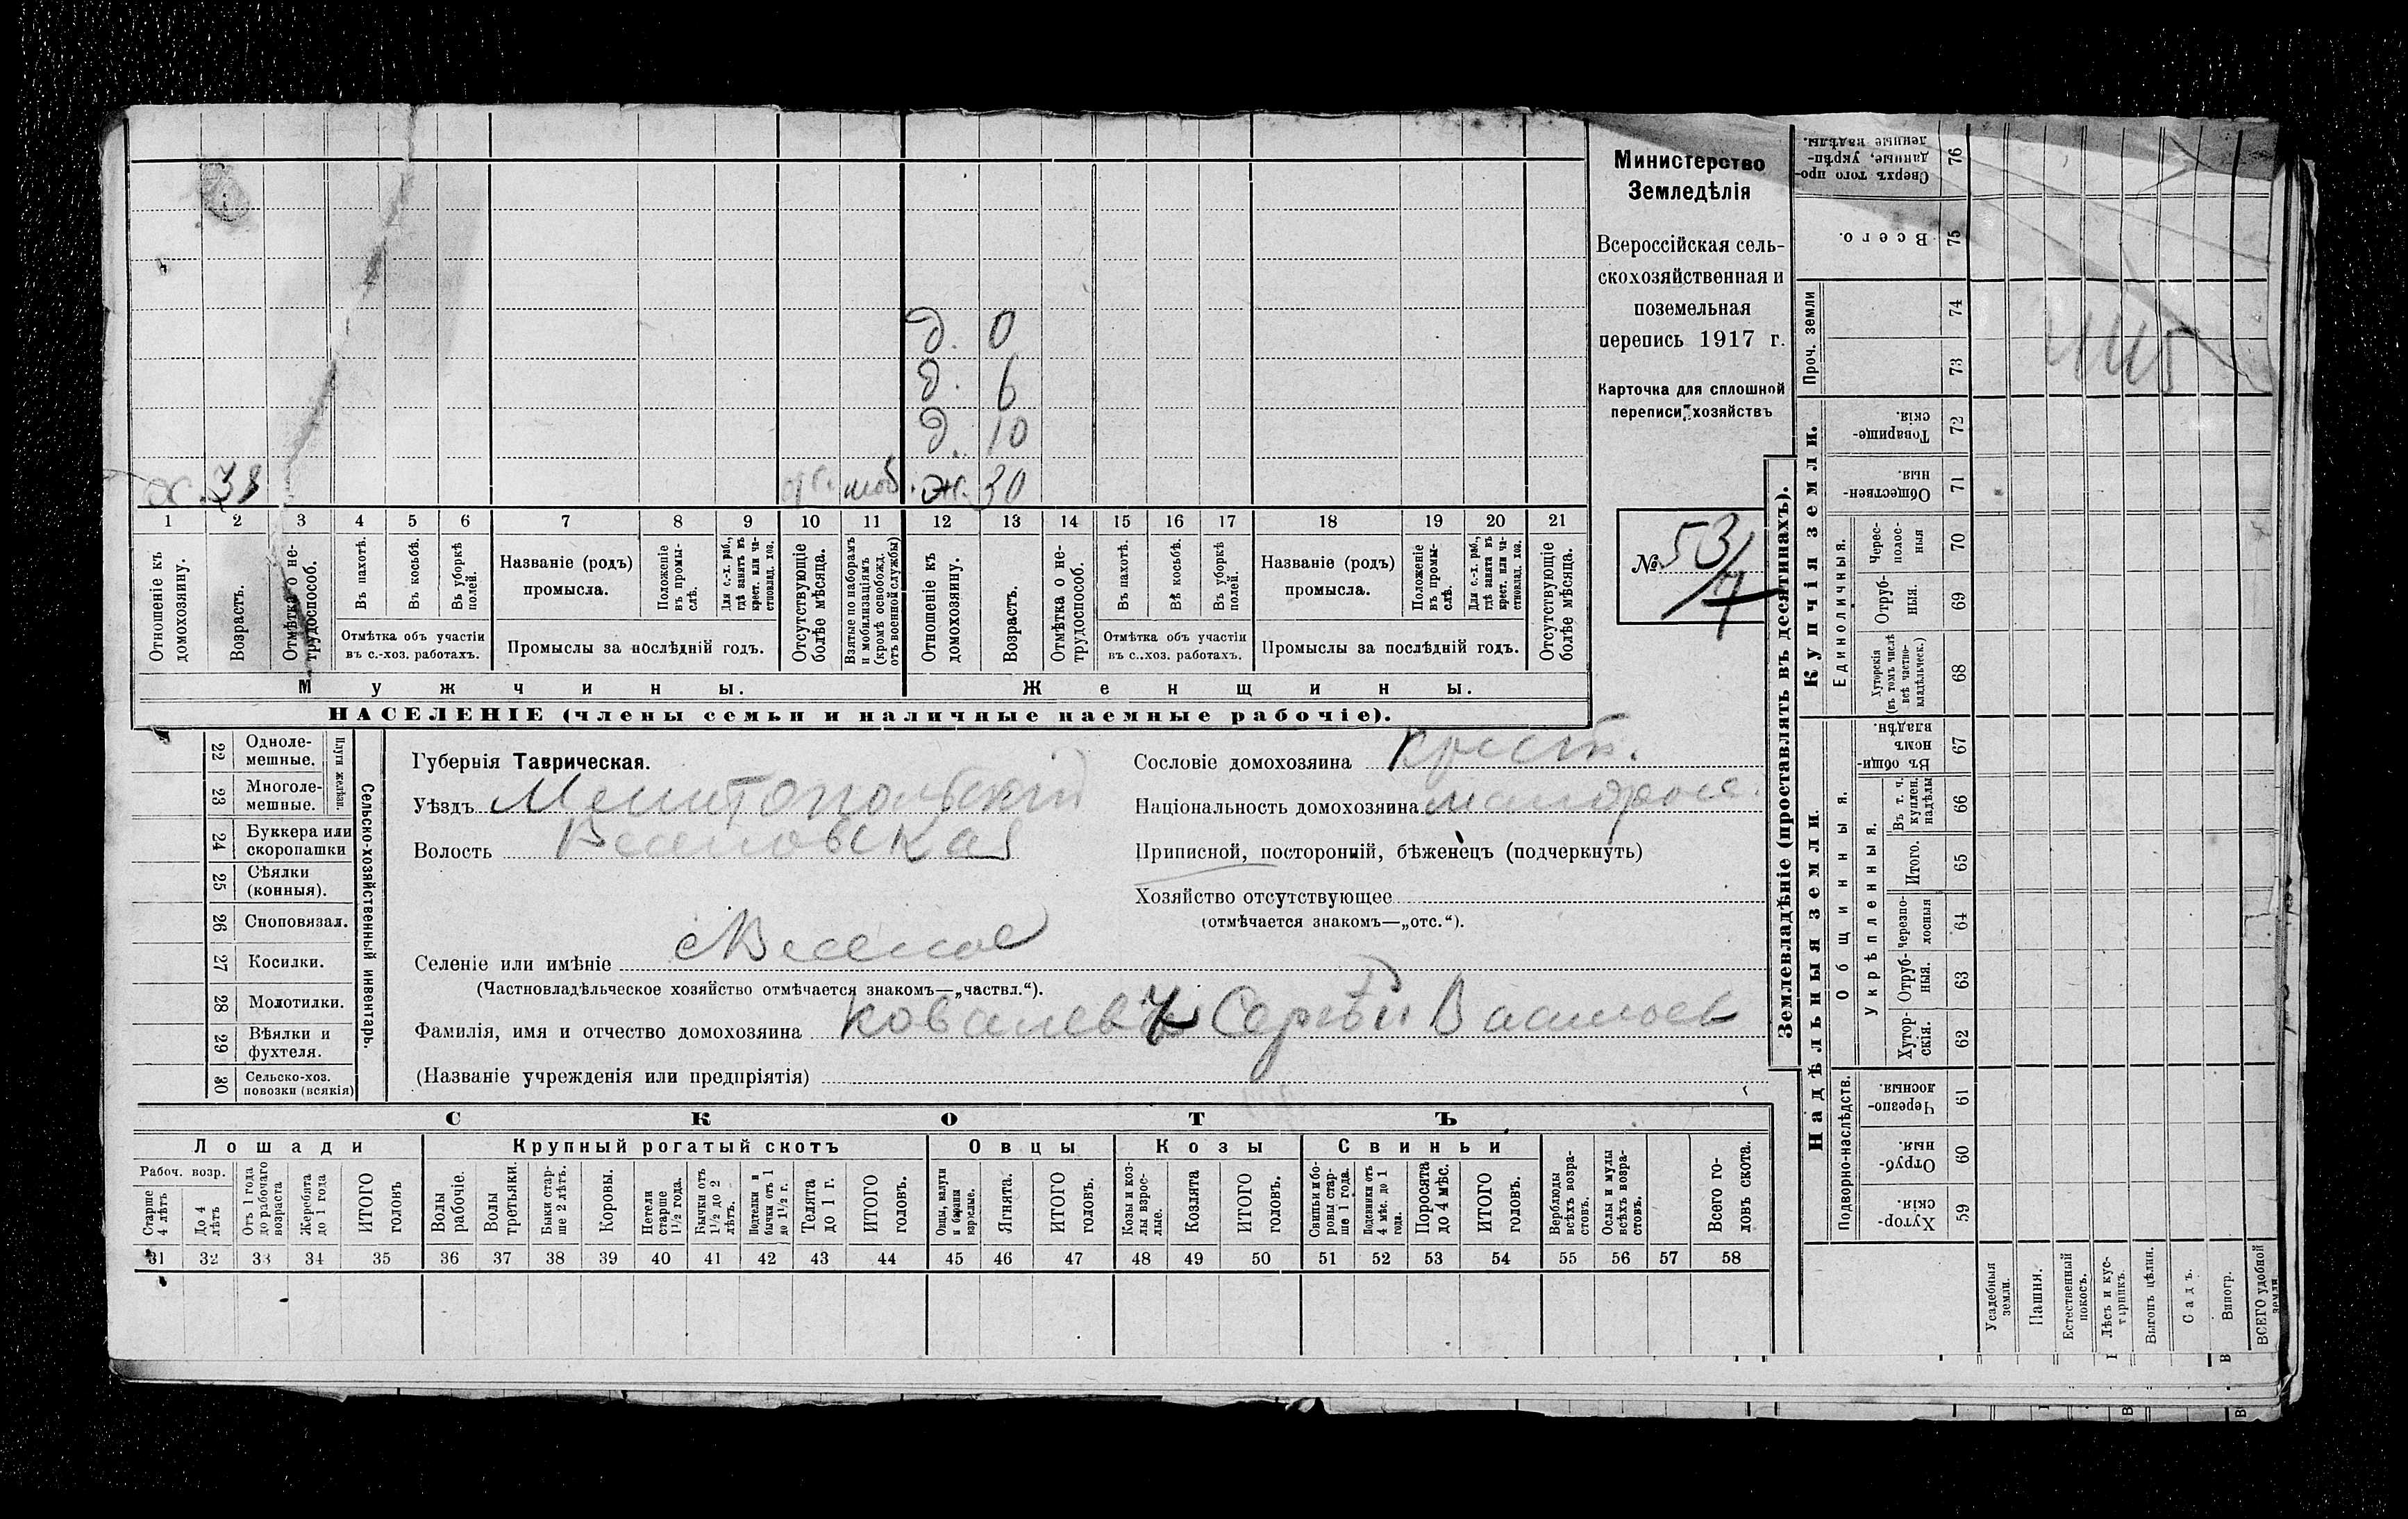 Министерство
Земледѣлія
Всероссійская сель-
скохозяйственная и
поземельная
перепись 1917 г.
Карточка для сплошной
переписи хозяйствъ
№ 53/7
д. 0
д. 6
д. 10
х. 38 отс. моб. ж. 30
1 2 3 4 5 6 7 8 9 10 11 12 13 14 15 16 17 18 19 20 21
Отношеніе къ домохозяину.
Возрастъ.
Отмѣтка о не-трудоспособ.
Въ пахотѣ.
Въ косьбѣ.
Въ уборкѣ полей.
Отмѣтка объ участіи
въ с.-хоз. работахъ.
Названіе (родъ)
промысла.
Положеніе въ промы-слѣ.
Для с.-х. раб., гдѣ занятъ въ крест. или ча-стновлад. хоз.
Промыслы за послѣдній годъ.
Отсутствующіе болѣе мѣсяца.
Взятые по наборамъ и мобилизаціямъ (кромѣ освобожд. отъ военной службы)
Отношеніе къ домохозяину.
Возрастъ.
Отмѣтка о не-трудоспособ.
Въ пахотѣ.
Въ косьбѣ.
Въ уборкѣ полей.
Отмѣтка объ участіи
въ с..хоз. работахъ.
Названіе (родъ)
промысла.
Положеніе въ промы-слѣ.
Для с.-х. раб., гдѣ занята въ крест. или ча-стновлад. хоз.
Промыслы за послѣдній годъ.
Отсутствующіе болѣе мѣсяца.
Мужчины.
Женщины.
НАСЕЛЕНІЕ (члены семьи и наличные наемные рабочіе).
Сельско-хозяйственный инвентарь.
Плуги желѣзн.
22 Одноле-мешные.
23 Многоле-мешные.
24 Буккера или скоропашки
25 Сѣялки (конныя).
26 Сноповязал.
27 Косилки.
28 Молотилки.
29 Вѣялки и фухтеля.
30 Сельско-хоз. повозки (всякія)
Губернія Таврическая.
Уѣздъ Мелитопольскій
Волость Веселовская
Селеніе или имѣніе с Веселое
(Частновладѣльческое хозяйство отмѣчается знакомъ—„частвл.“).
Фамилія, имя и отчество домохозяина Ковалев Сергѣй Васильев
(Названіе учрежденія или предпріятія)
Сословіе домохозяина крест.
Національность домохозяина малорос.
Приписной, посторонній, бѣженецъ (подчеркнуть)
Хозяйство отсутствующее
(отмѣчается знакомъ—„отс.“).
СКОТЪ
Лошади
Крупный рогатый скотъ
Овцы
Козы
Свиньи
Рабоч. возр.
Старше 4 лѣтъ
До 4 лѣтъ
Отъ 1 года до рабочаго возраста
Жеребята до 1 года
ИТОГО головъ
Волы рабочіе.
Волы третьяки.
Быки стар-ше 2 лѣтъ.
Коровы.
Нетели старше 1½ года.
Бычки отъ 1½ до 2 лѣтъ.
Подтелки и бычки отъ 1 до 1½ г.
Телята до 1 г.
ИТОГО головъ.
Овцы, валухи и бараны взрослые.
Ягнята.
ИТОГО головъ.
Козы и коз-лы взрос-лые.
Козлята
ИТОГО головъ.
Свиньи и бо-ровы стар-ше 1 года.
Подсвинки отъ 4 мѣс. до 1 года.
Поросята до 4 мѣс.
ИТОГО головъ.
Верблюды всѣхъ возра-стовъ.
Ослы и мулы всѣхъ возра-стовъ.
Всего го-ловъ скота.
31 32 33 34 35 36 37 38 39 40 41 42 43 44 45 46 47 48 49 50 51 52 53 54 55 56 57 58
Землевладѣніе (проставлять въ десятинахъ).
Сверхъ того про-данные, укрѣп-ленные надѣлы. 76
Всего. 75
Проч. земли
74
73
Купчія земли.
Товарище-скія. 72
Обществен-ныя. 71
Единоличныя.
Черес-полос-ныя 70
Отруб-ныя. 69
Хуторскія (въ томъ числѣ всѣ частно-владѣльческ.) 68
Надѣльныя земли.
Общинныя.
Въ общи-номъ владѣн. 67
Укрѣпленныя.
Въ т. ч. куплен. надѣлы 66
Итого. 65
Черезпо-лосныя 64
Отруб-ныя. 63
Хутор-скія. 62
Подворно-наслѣдств.
Черезпо-лосныя. 61
Отруб-ныя. 60
Хутор-скія. 59
Усадебныя земли.
Пашня.
Естественный покосъ.
Лѣсъ и кус-тарникъ.
Выгонъ цѣлин.
Садъ.
Виногр.
ВСЕГО удобной земли